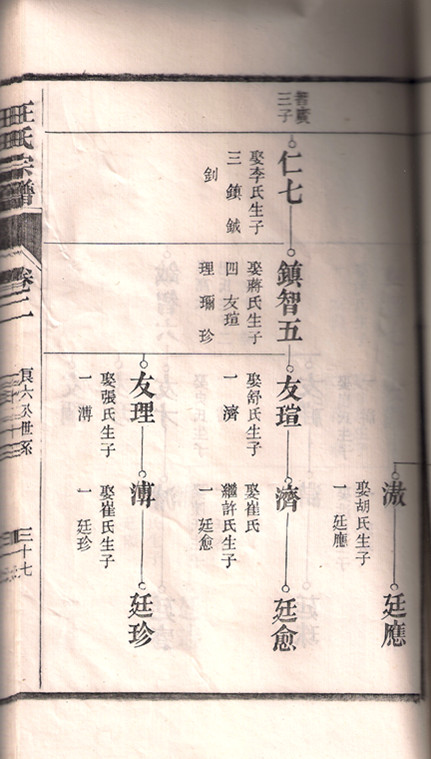 滶
娶胡氏生子
一 廷應
廷應
廣
三子
仁七
娶李氏生子
三 鎮 鉞
釗
鎮智五
娶蔣氏生子
四 友瑄
理 珍
友瑄
娶舒氏生子
一 濟
濟
娶崔氏
繼許氏生子
一 廷愈
廷愈
友理
娶張氏生子
一 溥
溥
娶崔氏生子
一 廷珍
廷珍
汪氏宗譜
卷
世系
三十七